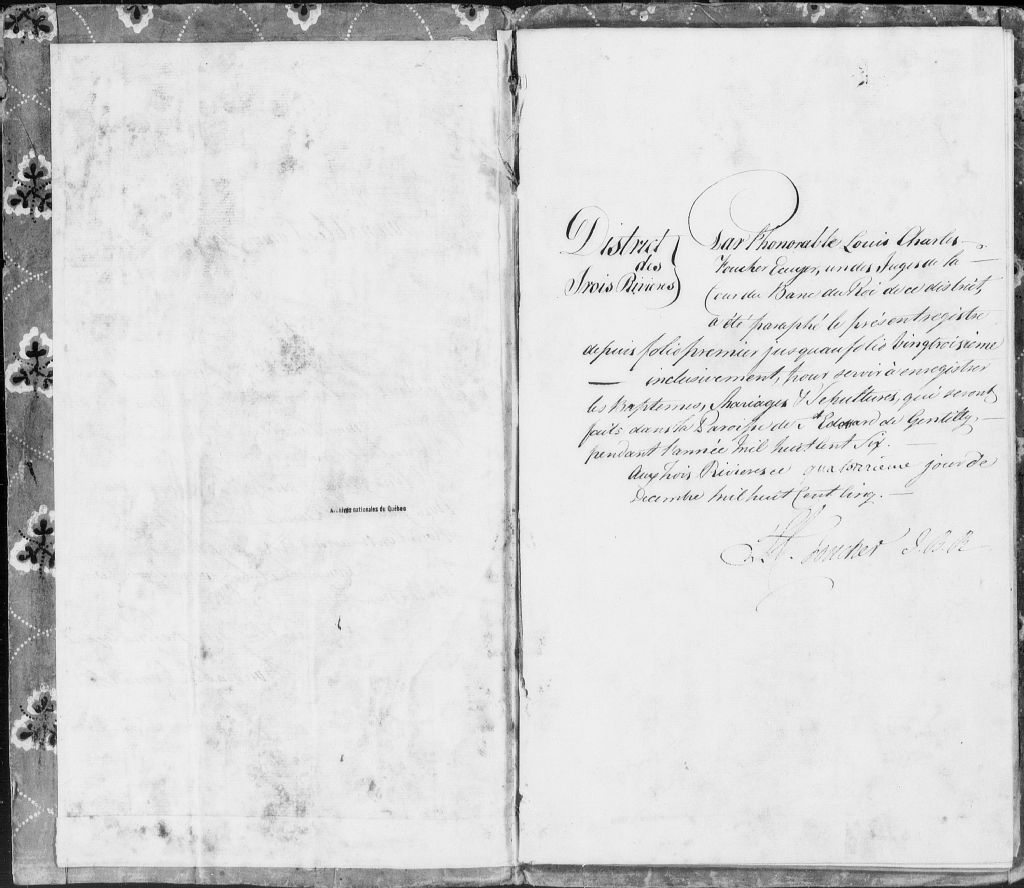 Archives nationales du Québec
District
des
Trois Rivieres
Par l'honorable Louis Charles
Foucher Ecuyer, un des Juges de la
Cour du Banc du Roi de ce district,
a été paraphé le présent registre
depuis folio premier jusqu'au folio vingtroisième
inclusivement, pour servir à enregistrer
les Baptemes, Mariages & Sepultures, qui seront
faits dans la Paroisse de St Edouard de Gentilly,
pendant l'année mil huit cent Six.
Aux trois Rivieres ce quatorzieme jour de
Decembre mil huit Cent Cinq.
Foucher J.B.R